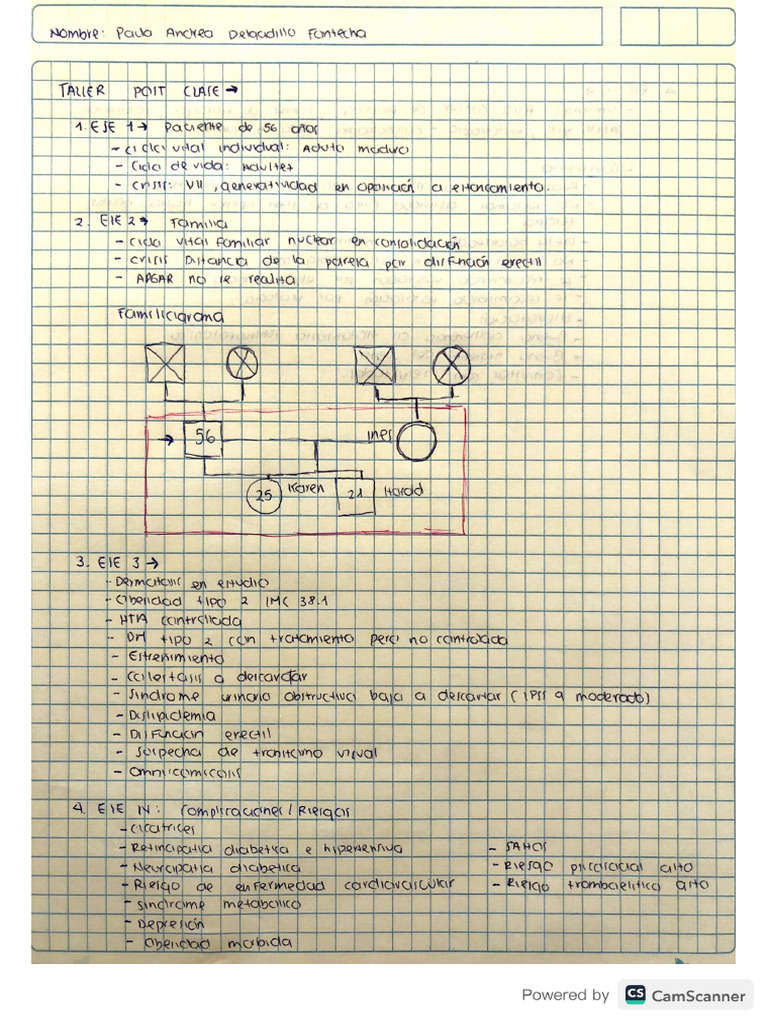 Nombre: Paula Andrea Delgadillo Fontecha
TALLER POST CLASE →
1. EJE 1 → Paciente de 56 años
- Ciclo vital individual: Adulto maduro
- Ciclo de vida: Adultez
- Crisis: VII, generatividad en oposición a estancamiento.
2. EJE 2 → Familia
- Ciclo vital familiar nuclear en consolidación
- Crisis Distancia de la pareja por disfunción erectil
- APGAR no se realiza
Familiograma
56
Ines
25
Karen
21
Harold
3. EJE 3 →
- Dermatosis en estudio
- Obesidad tipo 2 IMC 38.1
- HTA controlada
- DM tipo 2 con tratamiento pero no controlada
- Estreñimiento
- Colestasis a descartar
- Sindrome urinario obstructivo bajo a descartar (IPSS 9 moderado)
- Dislipidemia
- Disfuncion erectil
- Sospecha de trastorno visual
- Onnicomicosis
4. EJE IV: Complicaciones / Riesgos
- Cicatrices
- Retinopatia diabetica e hipertensiva
- Neuropatia diabetica
- Riesgo de enfermedad cardiovascular
- Sindrome metabolico
- Depresión
- Obesidad morbida
- SAHOS
- Riesgo psicosocial alto
- Riesgo tromboelitico alto
Powered by CS CamScanner